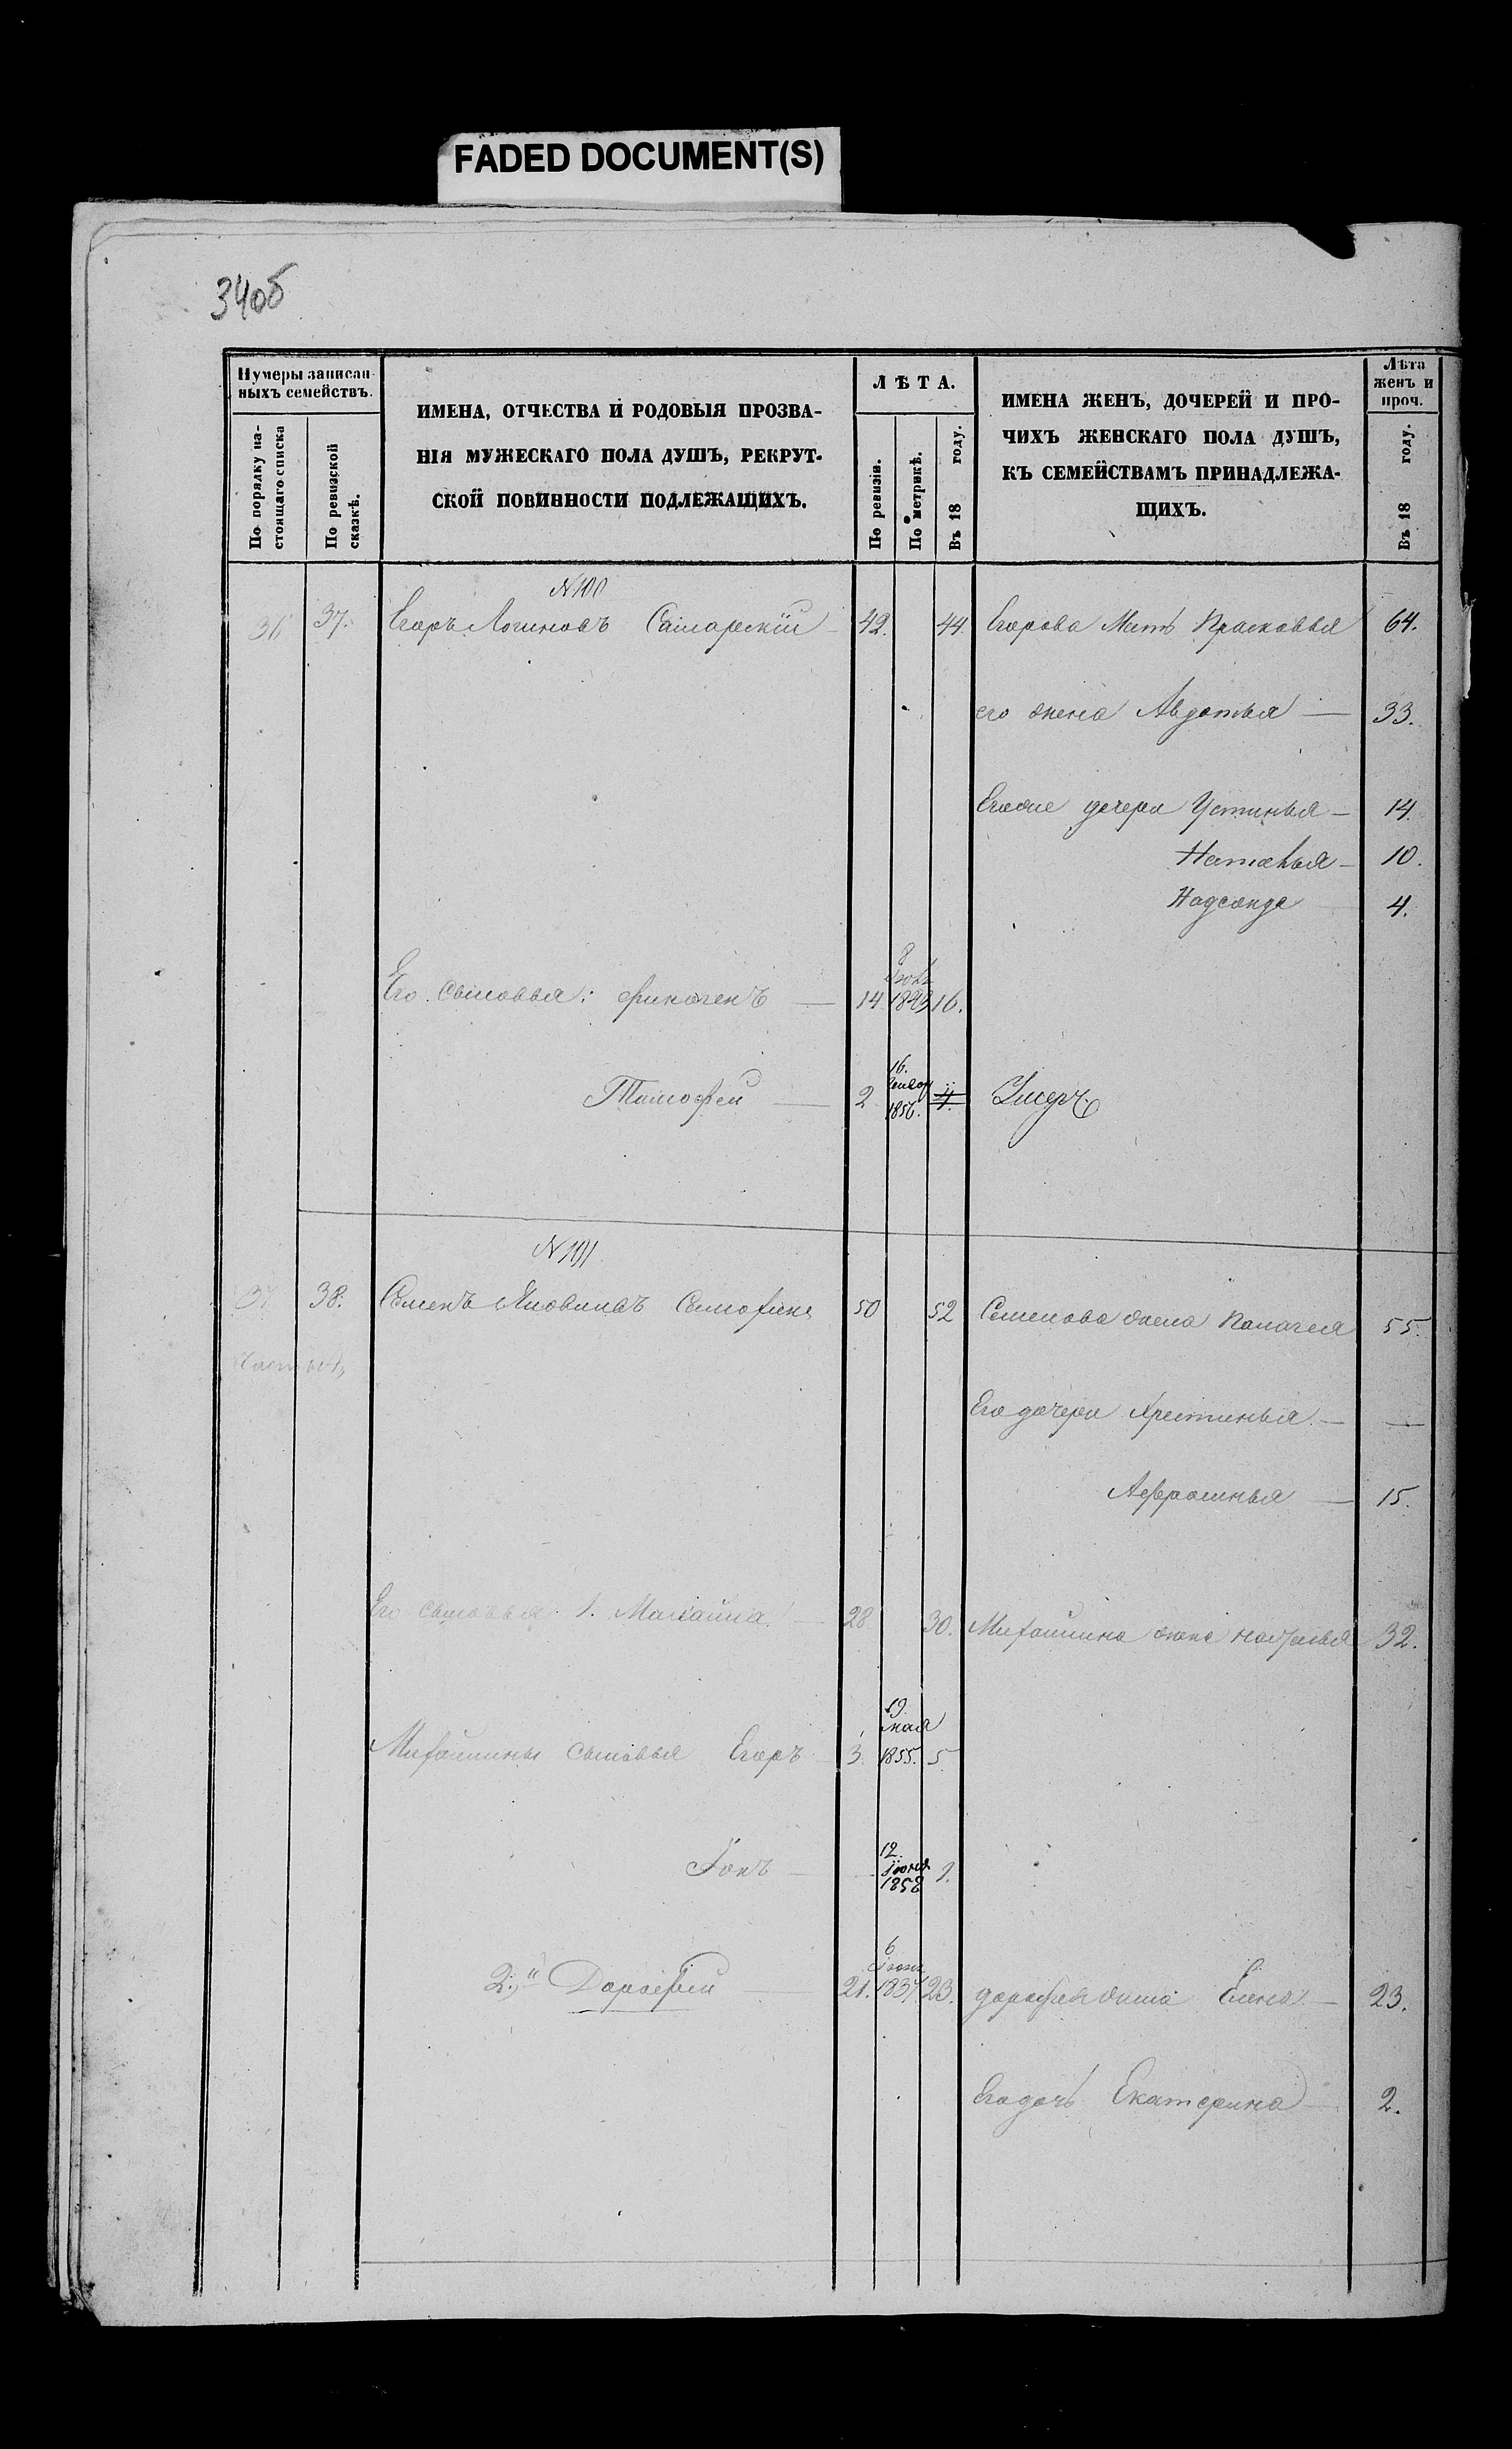 FADED DOCUMENT(S)
34об
Нумеры записан-
ныхъ семействъ.
По порядку на-
стоящаго списка
По ревизской
сказкѣ.
ИМЕНА, ОТЧЕСТВА И РОДОВЫЯ ПРОЗВА-
НІЯ МУЖЕСКАГО ПОЛА ДУШЪ, РЕКРУТ-
СКОЙ ПОВИННОСТИ ПОДЛЕЖАЩИХЪ.
ЛѢТА.
По ревизіи.
По метрикѣ.
Въ 18 году.
ИМЕНА ЖЕНЪ, ДОЧЕРЕЙ И ПРО-
ЧИХЪ ЖЕНСКАГО ПОЛА ДУШЪ,
КЪ СЕМЕЙСТВАМЪ ПРИНАДЛЕЖА-
ЩИХЪ.
Лѣта
женъ и
проч.
Въ 18 году.
N 100
36 37. Егоръ Логиновъ Самарскій 42. 44. Егорова Мать Прасковья 64.
его жена Авдотья — 33.
Егоже дочери Устинья — 14.
Наталья — 10.
4.
8
Его Сыновья: финогенъ — 14 1843 16.
16.
Генвар
Тимофей — 2 1856. 4. Умеръ
N 101
37. 38. Семенъ Яковлевъ 50 52 Семенова жена Палагея 55.
Его дочери Хрестинья — —
Афросинья — 15.
Его сыновья 1. Михайла — 28 30. Михайлина жена 32.
19
мая
Михайлины сыновья Егоръ — 3. 1855. 5.
12
Іюня
Іонъ — — 1858
6
2.й Дорофей — 21. 1837. 23. дорофея жена Елена — 23.
Его дочь Екатерина — 2.